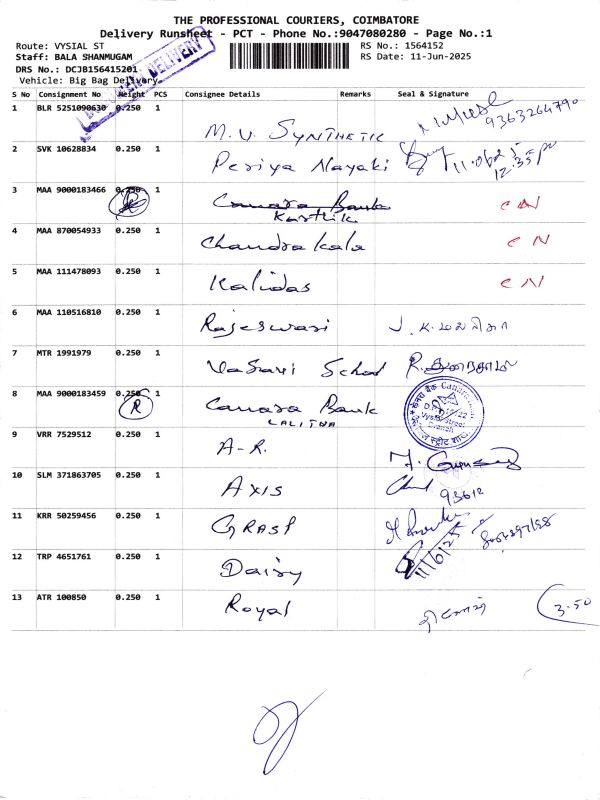 THE PROFESSIONAL COURIERS, COIMBATORE
Delivery Runsheet - PCT - Phone No.:9047080280 - Page No.:1
Route: VYSIAL ST RS No.: 1564152
Staff: BALA SHANMUGAM RS Date: 11-Jun-2025
DRS No.: DCJB156415201
Vehicle: Big Bag Delivery
DELIVERY
S No Consignment No Weight PCS Consignee Details Remarks Seal & Signature
1 BLR 5251090630 0.250 1 M.V. SYNTHETIC 9363264790
2 SVK 10628834 0.250 1 Periya Nayaki 12.35 pm
3 MAA 9000183466 0.250 1 Canara Bank CN
R Karthik
4 MAA 870054933 0.250 1 Chandra kala CN
5 MAA 111478093 0.250 1 Kalidas CN
6 MAA 110516810 0.250 1 Rajeswari
7 MTR 1991979 0.250 1 Vasavi School
8 MAA 9000183459 0.250 1 Canara Bank
R LALITHA
Vysial Street
Branch
9 VRR 7529512 0.250 1 A-R.
10 SLM 371863705 0.250 1 AXIS 93612
11 KRR 50259456 0.250 1 GRASP
12 TRP 4651761 0.250 1 Daisy 11/6/25
13 ATR 100850 0.250 1 Royal 3.50